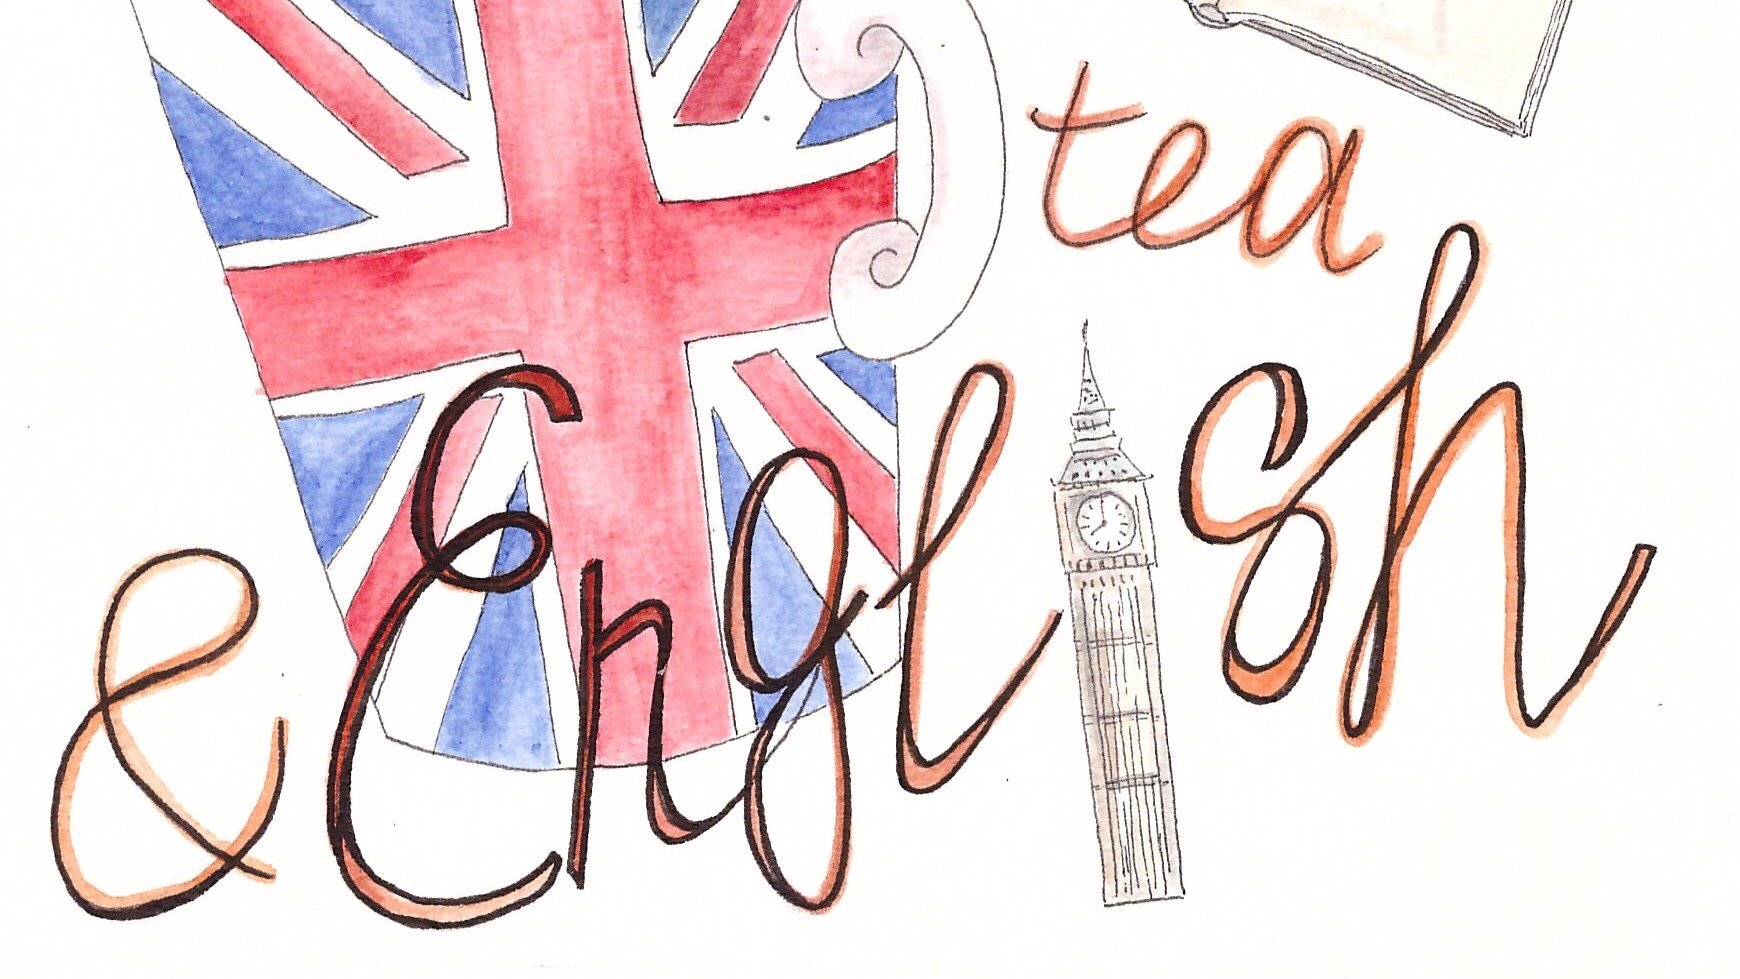 tea
& English